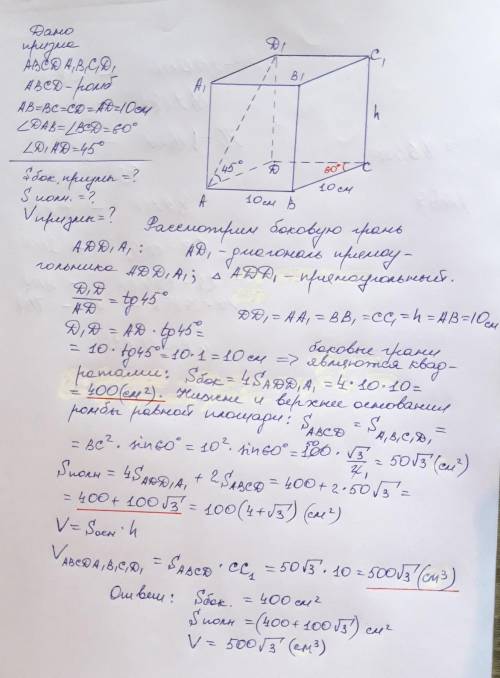 Дано
призма
ABCDA₁B₁C₁D₁
ABCD - ромб
AB=BC=CD=AD=10см
∠DAB=∠BCD=60°
∠D₁AD=45°
Sбок. призмы=?
Sполн.=?
Vпризмы=?
D₁
C₁
A₁
B₁
h
45°
D
60°
C
A
10см
B
10см
Рассмотрим боковую грань
ADD₁A₁: AD₁ - диагональ прямоу-
гольника ADD₁A₁; △ADD₁ - прямоугольный.
D₁D/AD = tg45°
D₁D = AD · tg45° =
DD₁=AA₁=BB₁=CC₁=h=AB=10см
= 10 · tg45° = 10·1 = 10 см => боковые грани
являются квад-
ратами: Sбок = 4S ADD₁A₁ = 4·10·10=
= 400(см²). Нижнее и верхнее основании
ромбы равной площади: S ABCD = S A₁B₁C₁D₁ =
= BC² · sin60° = 10² · sin60° = 100 · √3/2 = 50√3 (см²)
50
1
Sполн = 4S ADD₁A₁ + 2S ABCD = 400 + 2·50√3 =
= 400 + 100√3 = 100(4+√3) (см²)
V = Sосн · h
V ABCDA₁B₁C₁D₁ = S ABCD · CC₁ = 50√3 · 10 = 500√3 (см³)
Ответ: Sбок. = 400 см²
Sполн = (400+100√3) см²
V = 500√3 (см³)